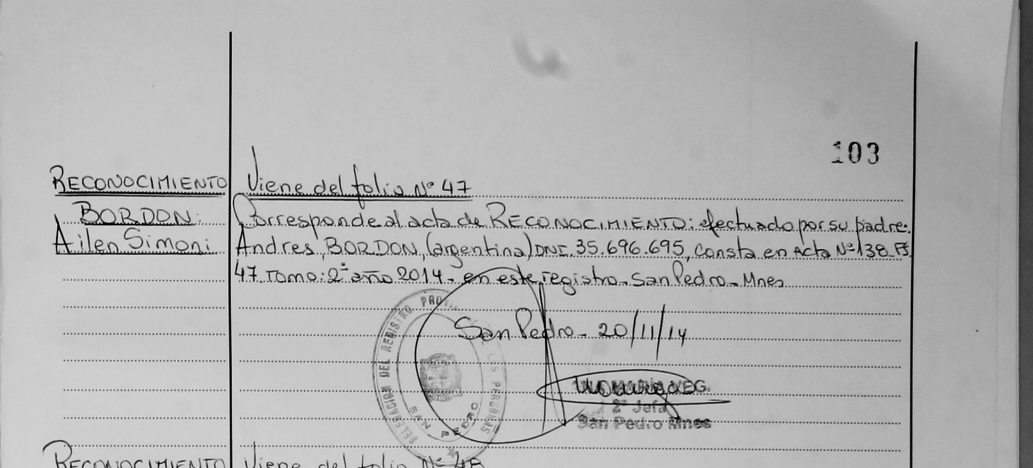 103
RECONOCIMIENTO
BORDON:
Ailen Simoni
Viene del folio Nº 47
Corresponde al acta de RECONOCIMIENTO: efectuado por su padre.
Andres, BORDON, (argentina) DNI. 35.696.695, Consta en Acta Nº 138. Fº
47. Tomo: 2º año 2014. en este registro. San Pedro. Mnes
San Pedro. 20/11/14
DELEGACION DEL REGISTRO PRO LAS PERSONAS
SAN PEDRO
2º Jefa
San Pedro Mnes
RECONOCIMIENTO
Viene del folio Nº 48